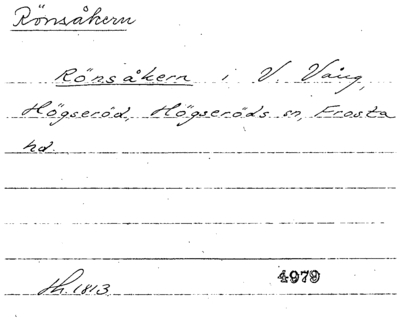 Rönsåkern
Rönsåkern i V. Vång,
Högseröd, Högseröds sn, Frosta
hd.
Lh. 1813
4979